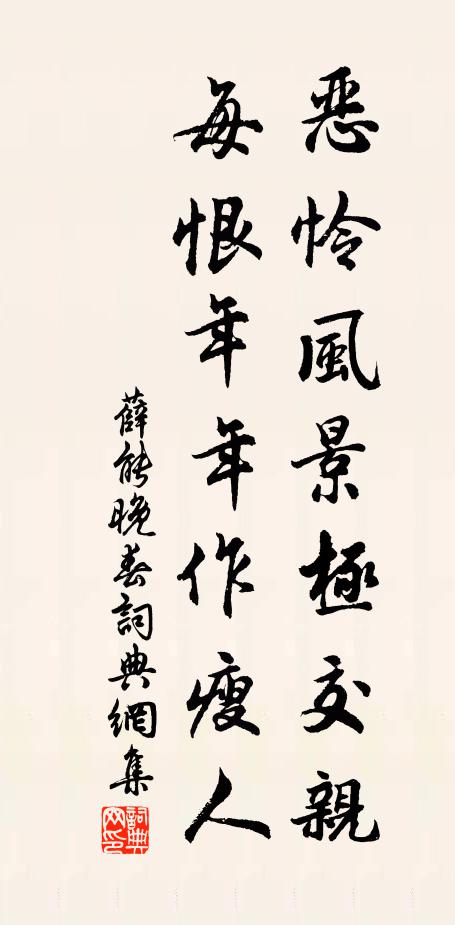 惡怜風景極交親
每恨年年作瘦人
薛能晚春詞典網集
詞典網印